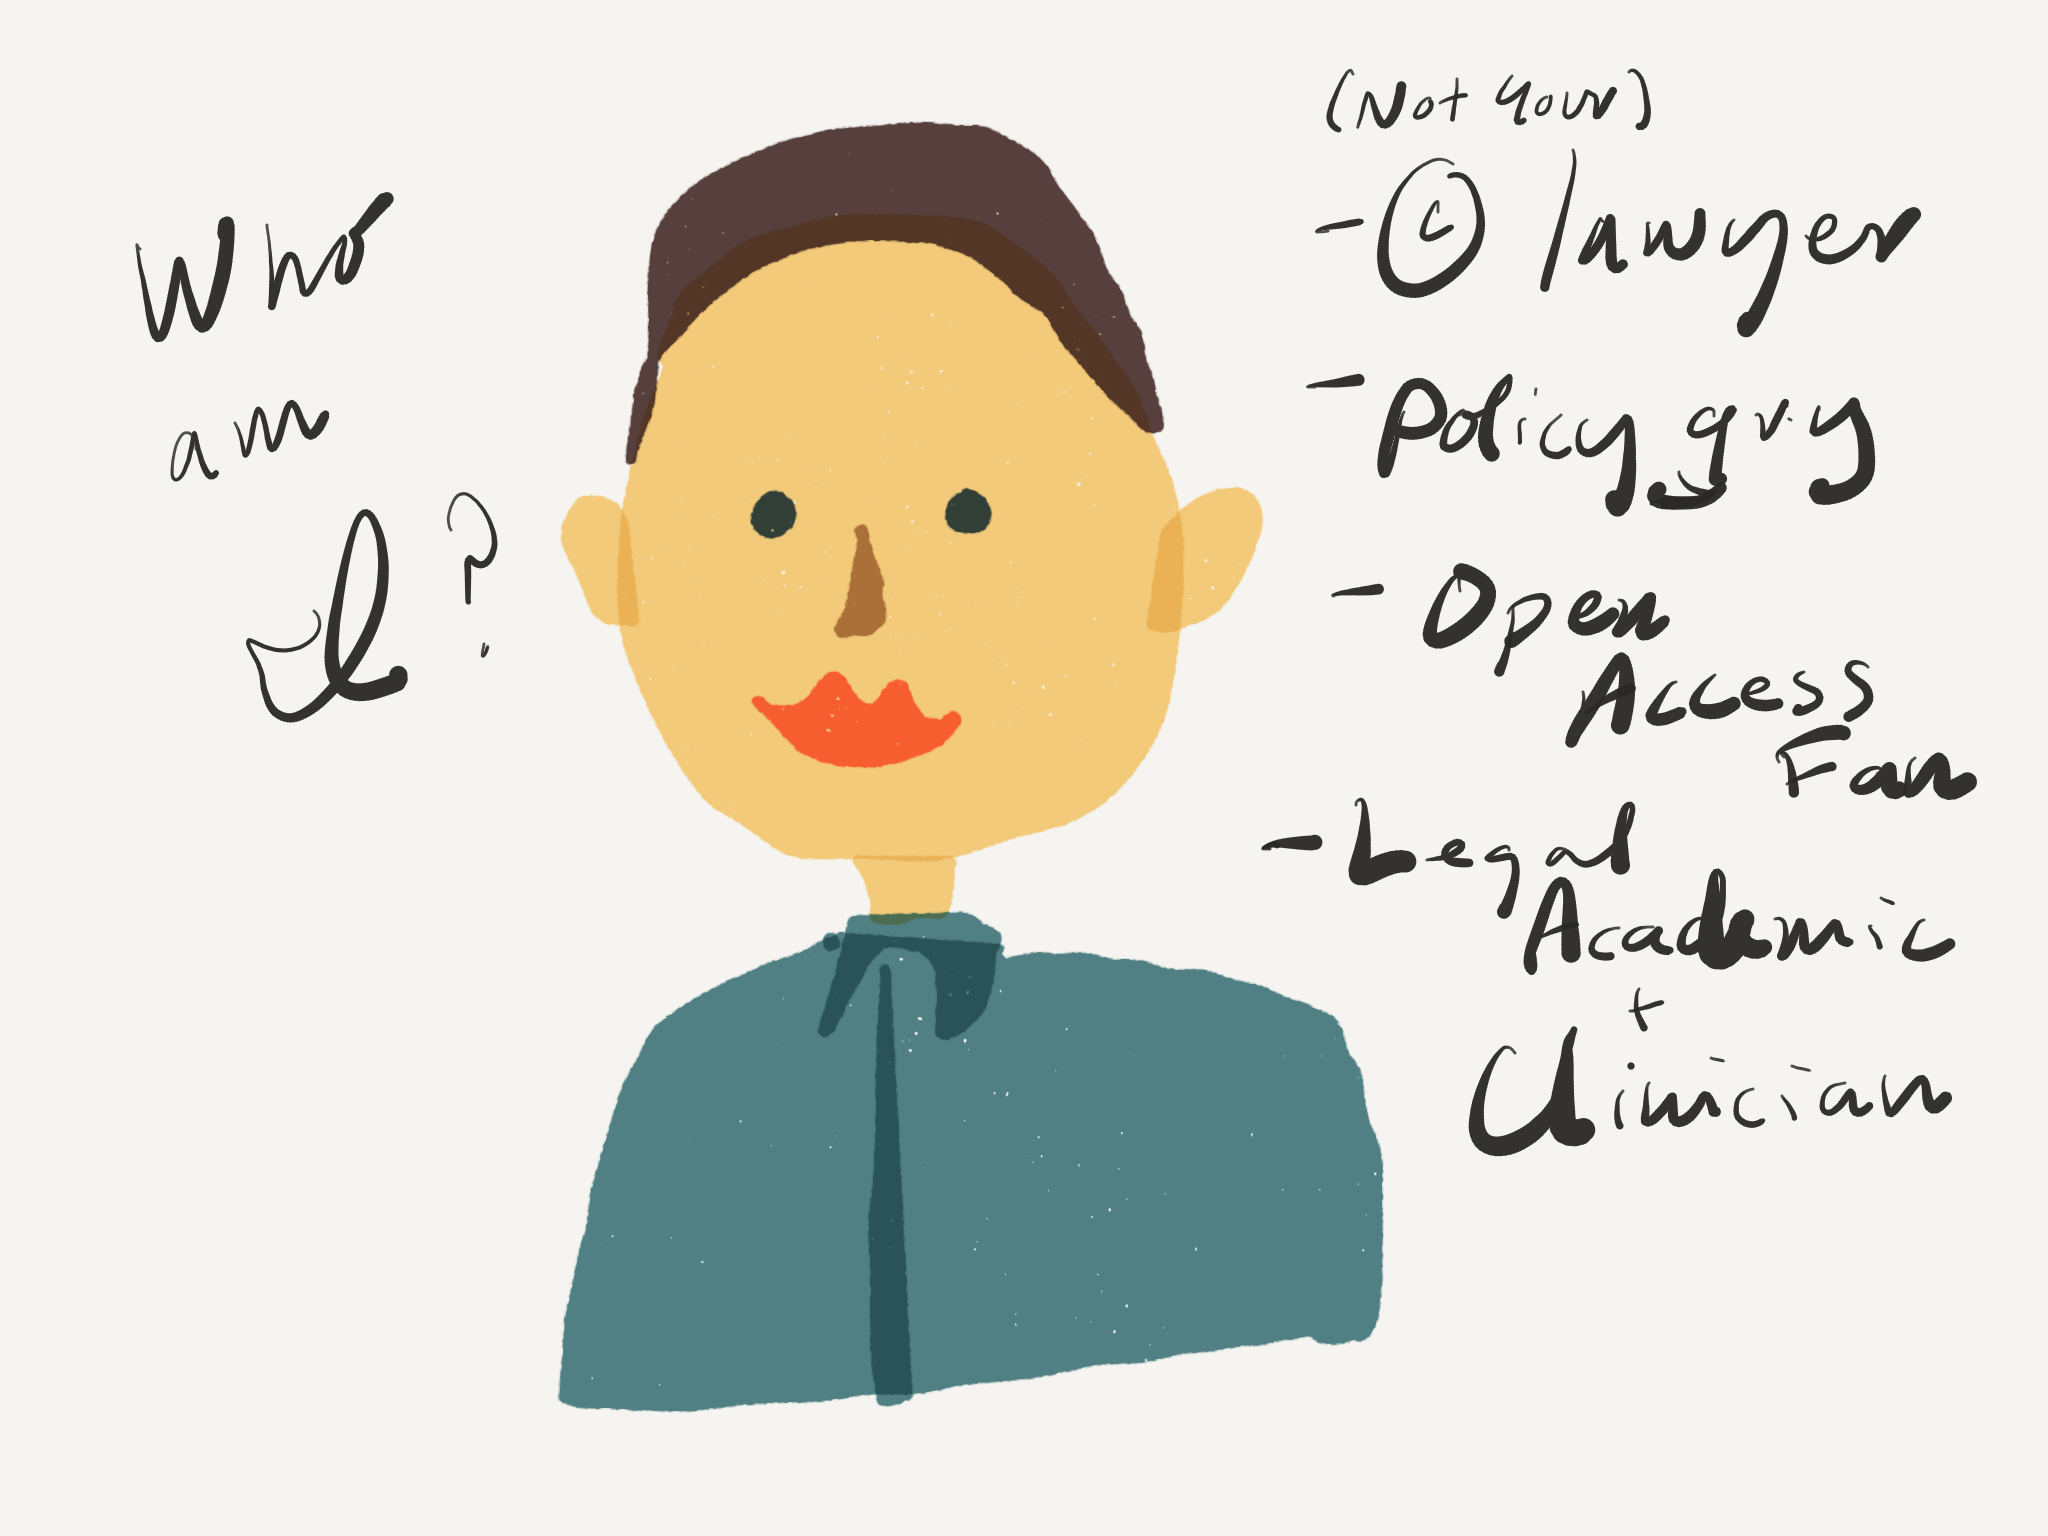 Who
am
I?
(Not your)
- © lawyer
- Policy guy
- Open
Access
Fan
- Legal
Academic
+
Clinician